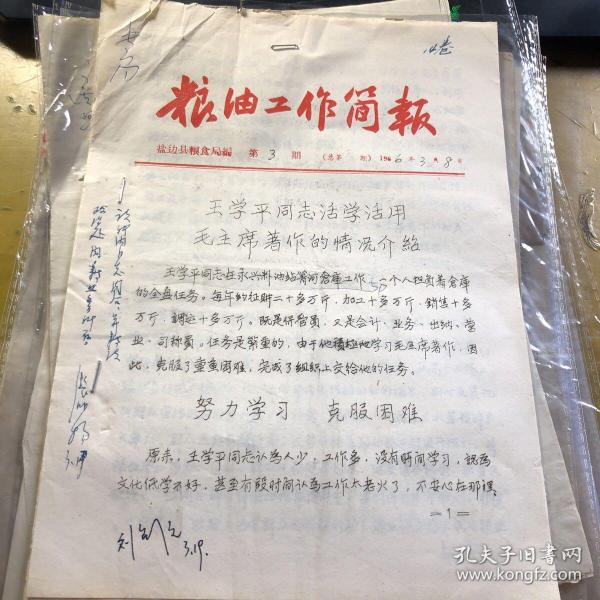 粮油工作简报
盐边县粮食局编 第3期 （总第 期） 1966年3月8日
王学平同志活学活用
毛主席著作的情况介紹
王学平同志在永兴粮油站箐河倉庫工作，一个人担负着倉庫
的全盘任务。每年约征購二十多万斤，加工十多万斤，銷售十多
万斤，調运十多万斤。既是保管员，又是会计、业务、出纳、营
业、司称员。任务是繁重的，由于他積極地学习毛主席著作，因
此，克服了重重困难，完成了組织上交給他的任务。
努力学习 克服困难
原来，王学平同志认为人少，工作多，没有時间学习，認為
文化低学不好，甚至有段时间认為工作太老火了，不安心在那裡。
=1=
3.19.
孔夫子旧书网
www.kongfz.com